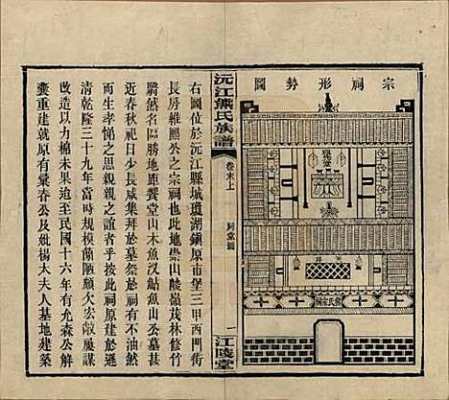 宗祠形勢圖
熊氏宗祠
沅江熊氏族譜
卷末上
祠堂圖
一
江陵堂
右圖位於沅江縣城瓊湖鎮原市堡三甲西門街
長房維
公之宗祠也此地崇山
嶺茂林修竹
然名區勝地距饗堂山木魚汊鮎魚山公墓甚
近春秋祀日少長咸集拜於墓祭於祠有不油然
而生孝悌之思親親之誼者乎按此祠原建於遜
清乾隆三十九年當時規模蘭陋頗欠宏敞屢謀
改造以力棉未果迨至民國十六年有允森公解
囊重建就原有彙春公及妣楊太夫人墓地建築